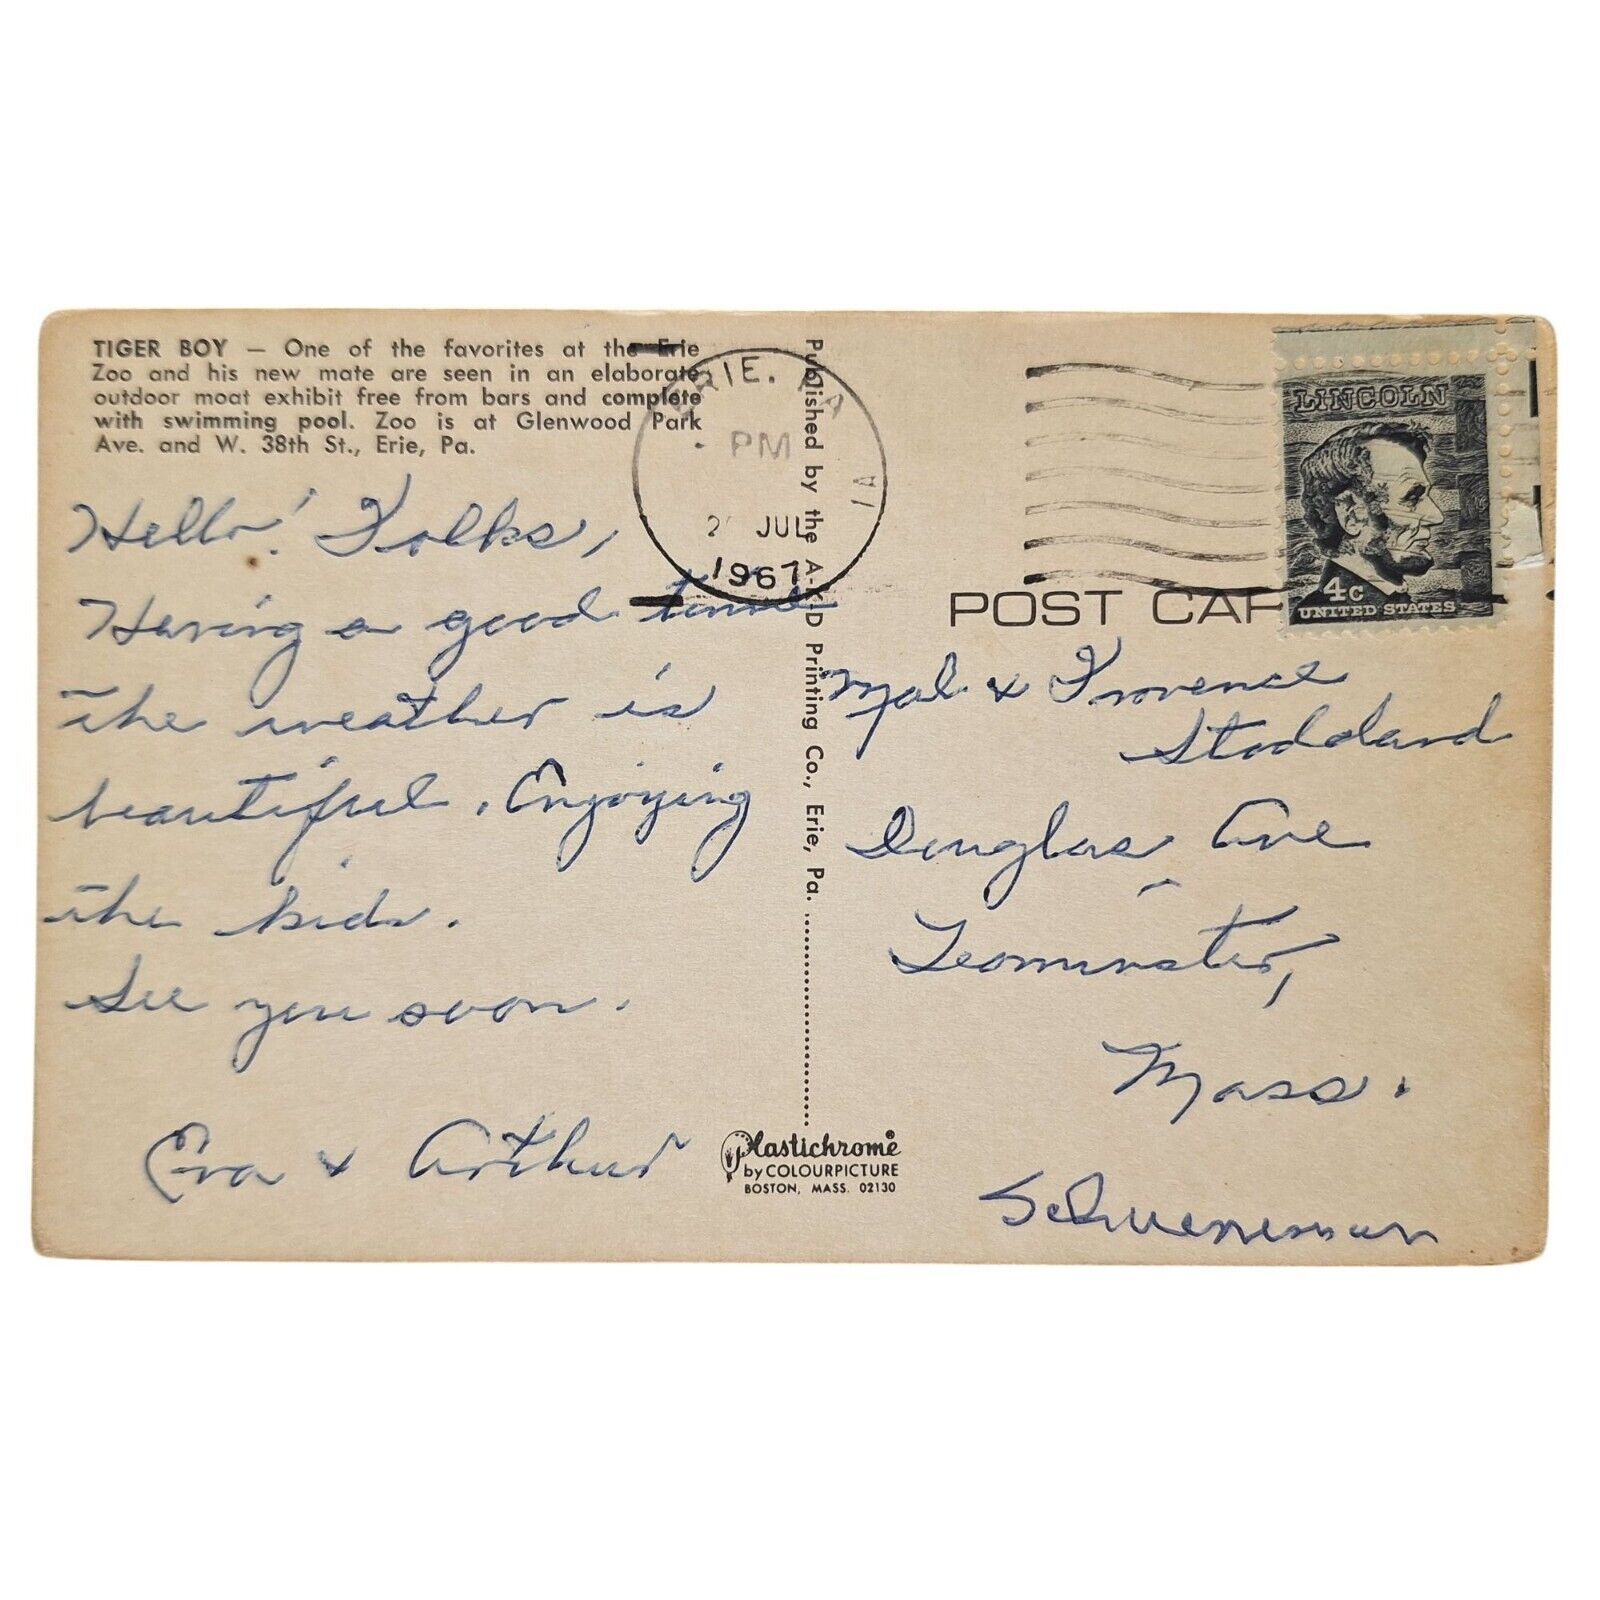 TIGER BOY — One of the favorites at the Erie
Zoo and his new mate are seen in an elaborate
outdoor moat exhibit free from bars and complete
with swimming pool. Zoo is at Glenwood Park
Ave. and W. 38th St., Erie, Pa.
Hello! Folks,
Having a good time
the weather is
beautiful. Enjoying
the kids.
See you soon.
Eva & Arthur
Published by the A-K-D Printing Co., Erie, Pa.
Plastichrome®
by COLOURPICTURE
BOSTON, MASS. 02130
ERIE, PA
PM
JUL
1967
LINCOLN
4c
UNITED STATES
POST CAR
Mal &
Stoddard
Douglas Ave
Leominster,
Mass.